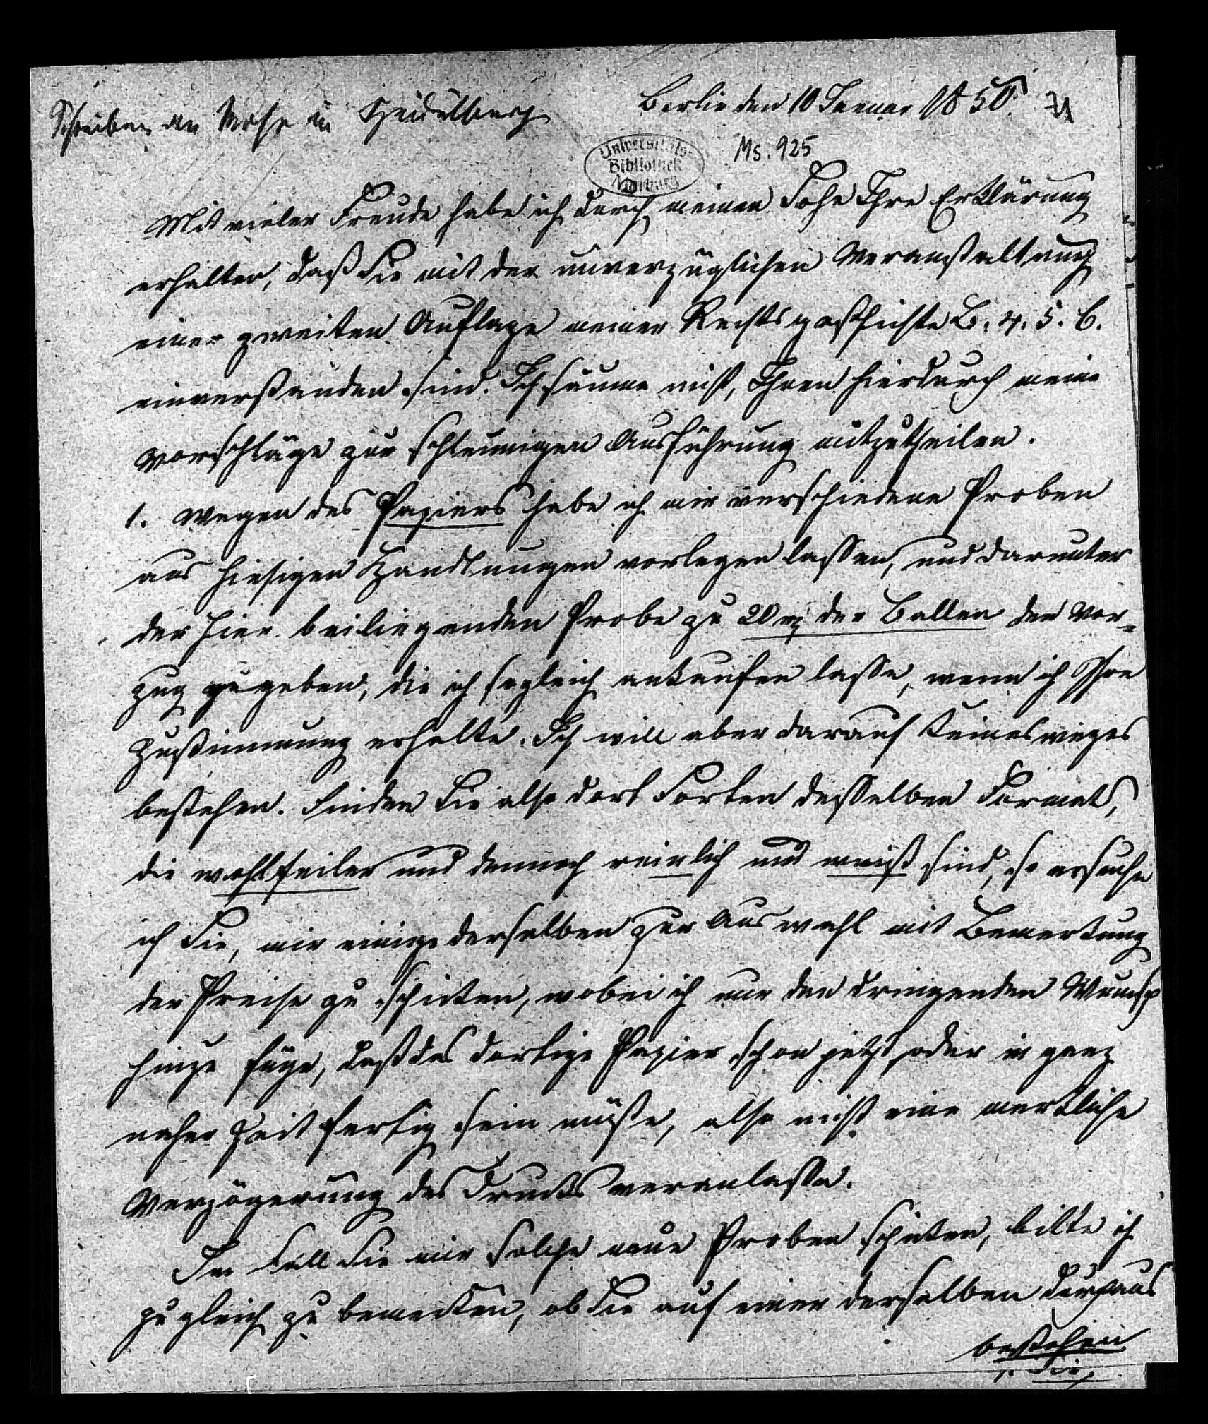 Schreiben an Mohr in Heidelberg
Berlin den 10 Januar 1850.
71
Universitäts-
Bibliothek
Marburg
Ms. 925
Mit vieler Freude habe ich durch meinen Sohn Ihre Erklärung
erhalten, daß Sie mit der unverzüglichen Veranstaltung
einer zweiten Auflage meiner Rechtsgeschichte B. 4. 5. 6.
einverstanden sind. Ich säume nicht, Ihnen hierdurch meine
Vorschläge zur schleunigen Ausführung mitzutheilen.
1. Wegen des Papiers habe ich mir verschiedene Proben
aus hiesigen Handlungen vorlegen lassen, und darunter
der hier beiliegenden Probe zu 20 der Ballen den Vor-
zug gegeben, die ich sogleich ankaufen lasse, wenn ich Ihre
Zustimmung erhalte. Ich will aber darauf keinesweges
bestehen. Finden Sie also dort Sorten desselben Formats,
die wohlfeiler und dennoch reinlich und weiß sind, so ersuche
ich Sie, mir einige derselben zur Auswahl mit Bemerkung
der Preise zu schicken, wobei ich nur den dringenden Wunsch
hinzu füge, daß das dortige Papier schon jetzt, oder in ganz
naher Zeit fertig sein müsse, also nicht eine merkliche
Verzögerung des Drucks veranlasse.
Im Fall Sie mir solche neue Proben schicken, bitte ich
zugleich zu bemerken, ob Sie auf einer derselben durchaus
bestehen